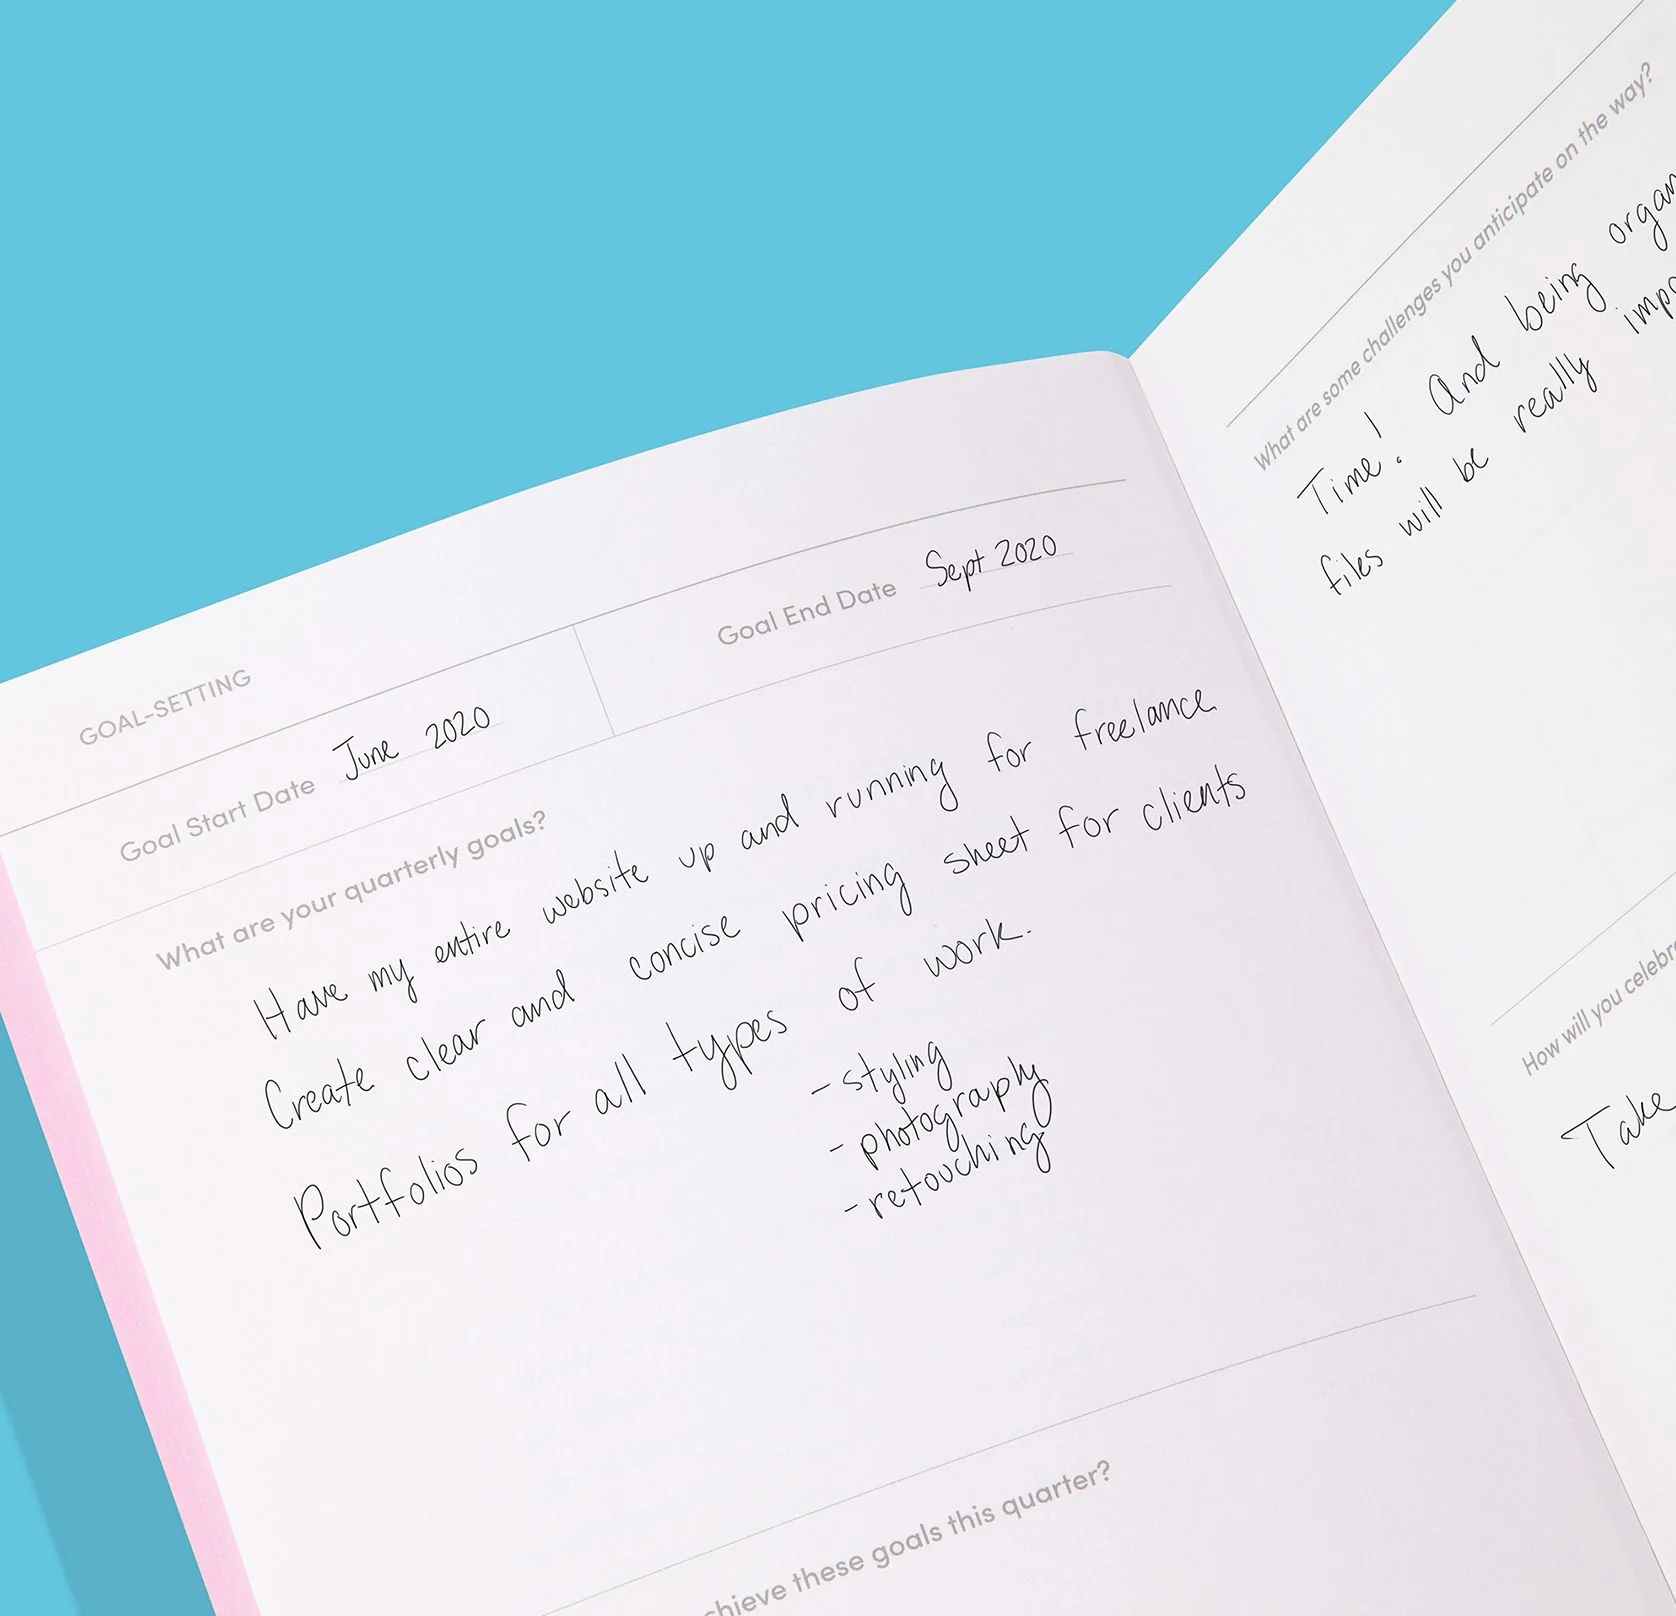 GOAL-SETTING
Goal Start Date June 2020
Goal End Date Sept 2020
What are your quarterly goals?
Have my entire website up and running for freelance.
Create clear and concise pricing sheet for clients
Portfolios for all types of work.
- styling
- photography
- retouching
these goals this quarter?
What are some challenges you anticipate on the way?
Time! And being
files will be really
How will you
Take